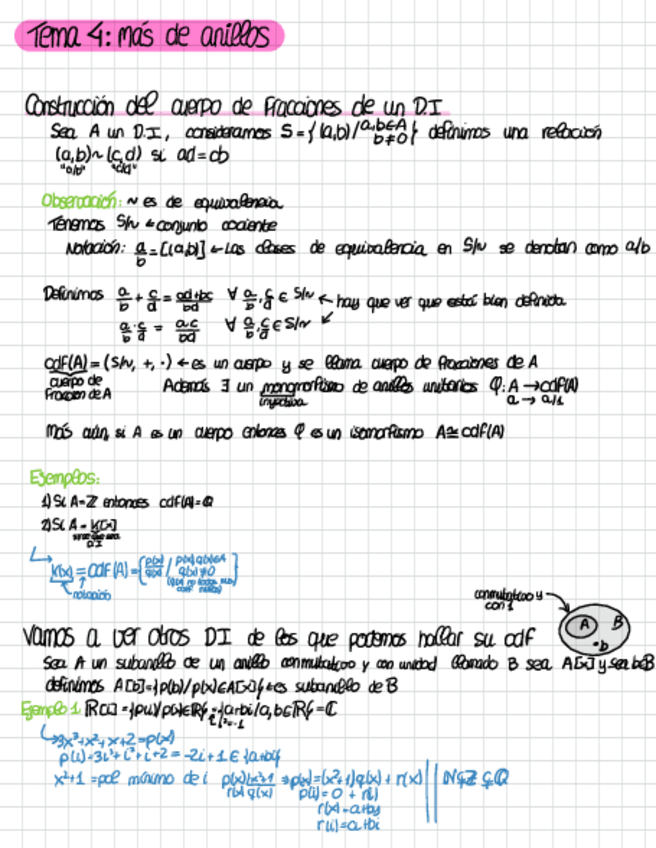 Tema 4: más de anillos
Construcción del cuerpo de Fracciones de un D.I
Sea A un D.I, consideramos S={(a,b)/a,b∈A b≠0} definimos una relación
(a,b)~(c,d) si ad=cb
"a/b" "c/d"
Observación: ~ es de equivalencia
Tenemos S/~ ← conjunto cociente
Notación: a/b = [(a,b)] ← Las clases de equivalencia en S/~ se denotan como a/b
Definimos a/b + c/d = ad+bc/bd ∀ a/b, c/d ∈ S/~ ← hay que ver que está bien definida
a/b · c/d = a·c/bd ∀ a/b, c/d ∈ S/~
cdf(A) = (S/~, +, ·) ← es un cuerpo y se llama cuerpo de fracciones de A
cuerpo de Fraccion de A
Además ∃ un monomorfismo de anillos unitarios φ: A → cdf(A)
inyectiva a → a/1
Más aún, si A es un cuerpo entonces φ es un isomorfismo A≅cdf(A)
Ejemplos:
1) Si A=ℤ entonces cdf(A)=ℚ
2) Si A = K[x]
D.I
K(x) = cdf(A) = {p(x)/q(x) / p(x),q(x)∈A q(x)≠0}
notación
conmutativo y con 1
A B
·b
Vamos a ver otros DI de los que podemos hallar su cdf
Sea A un subanillo de un anillo conmutativo y con unidad llamado B sea A[x] y sea b∈B
definimos A[b]={p(b)/p(x)∈A[x]} ← es subanillo de B
Ejemplo 1: ℝ[i] = {p(i)/p(x)∈ℝ} = {a+bi/a,b∈ℝ} = ℂ
i²=-1
3x³+x²+x+2=p(x)
p(i)=3i³+i²+i+2 = -2i+1 ∈ {a+bi}
x²+1 = pol mínimo de i p(x) |x²+1 ⇒ p(x)=(x²+1)q(x) + r(x) ℕ⊊ℤ⊊ℚ
r(x) q(x) p(i) = 0 + r(i)
r(x)=a+bx
r(i)=a+bi